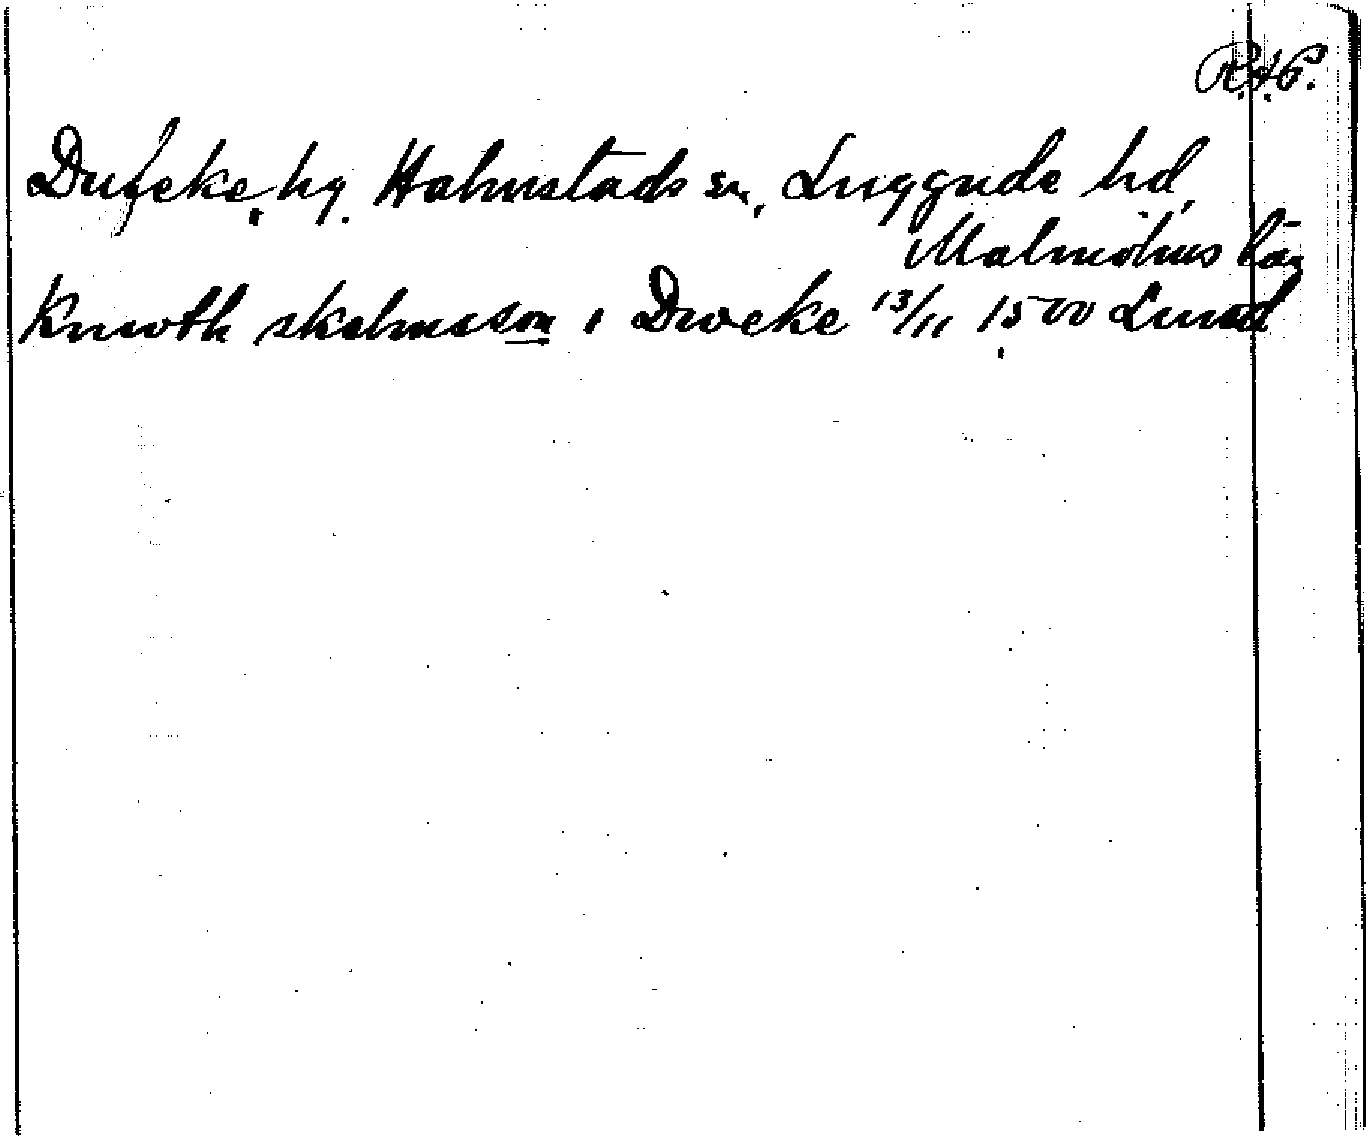 R.A.P.
Dufeke, hg. Halmstads sn, Luggude hd,
Malmöhus län
Knwth skalmsson i Dweke 13/11 1500 Lund